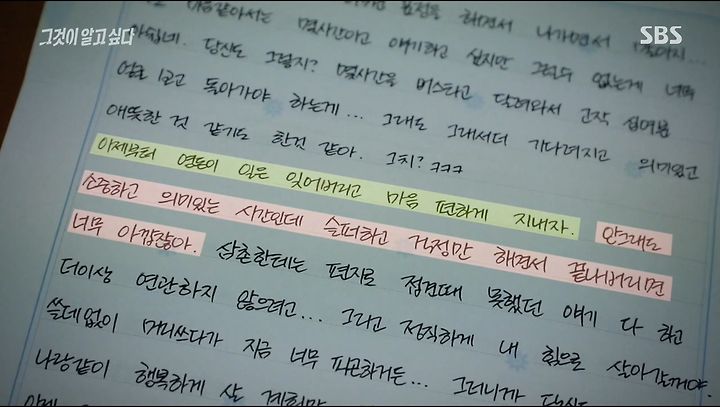 그것이 알고싶다
SBS
마음같아서는 몇시간이고 얘기하고 싶지만 그럴수 없는게 너무
아쉽네. 당신도 그렇지? 몇시간을 버스타고 달려와서 고작 십여분
얼굴 보고 돌아가야 하는게... 그래도 그래서더 기다려지고 의미있고
애뜻한 것 같기도 한것 같아. 그치? ㅋㅋㅋ
이제부터 영동이 일은 잊어버리고 마음 편하게 지내자. 안그래도
소중하고 의미있는 시간인데 슬퍼하고 걱정만 해면서 끝나버리면
너무 아깝잖아. 삼촌한테는 편지로 접견때 못했던 얘기 다 하고
더이상 연관하지 않으려고... 그라고 정직하게 내 힘으로 살아갈게야.
쓸데없이 머리쓰다가 지금 너무 피곤하거든... 그러니까 당신도
나랑같이 행복하게 살 계획만